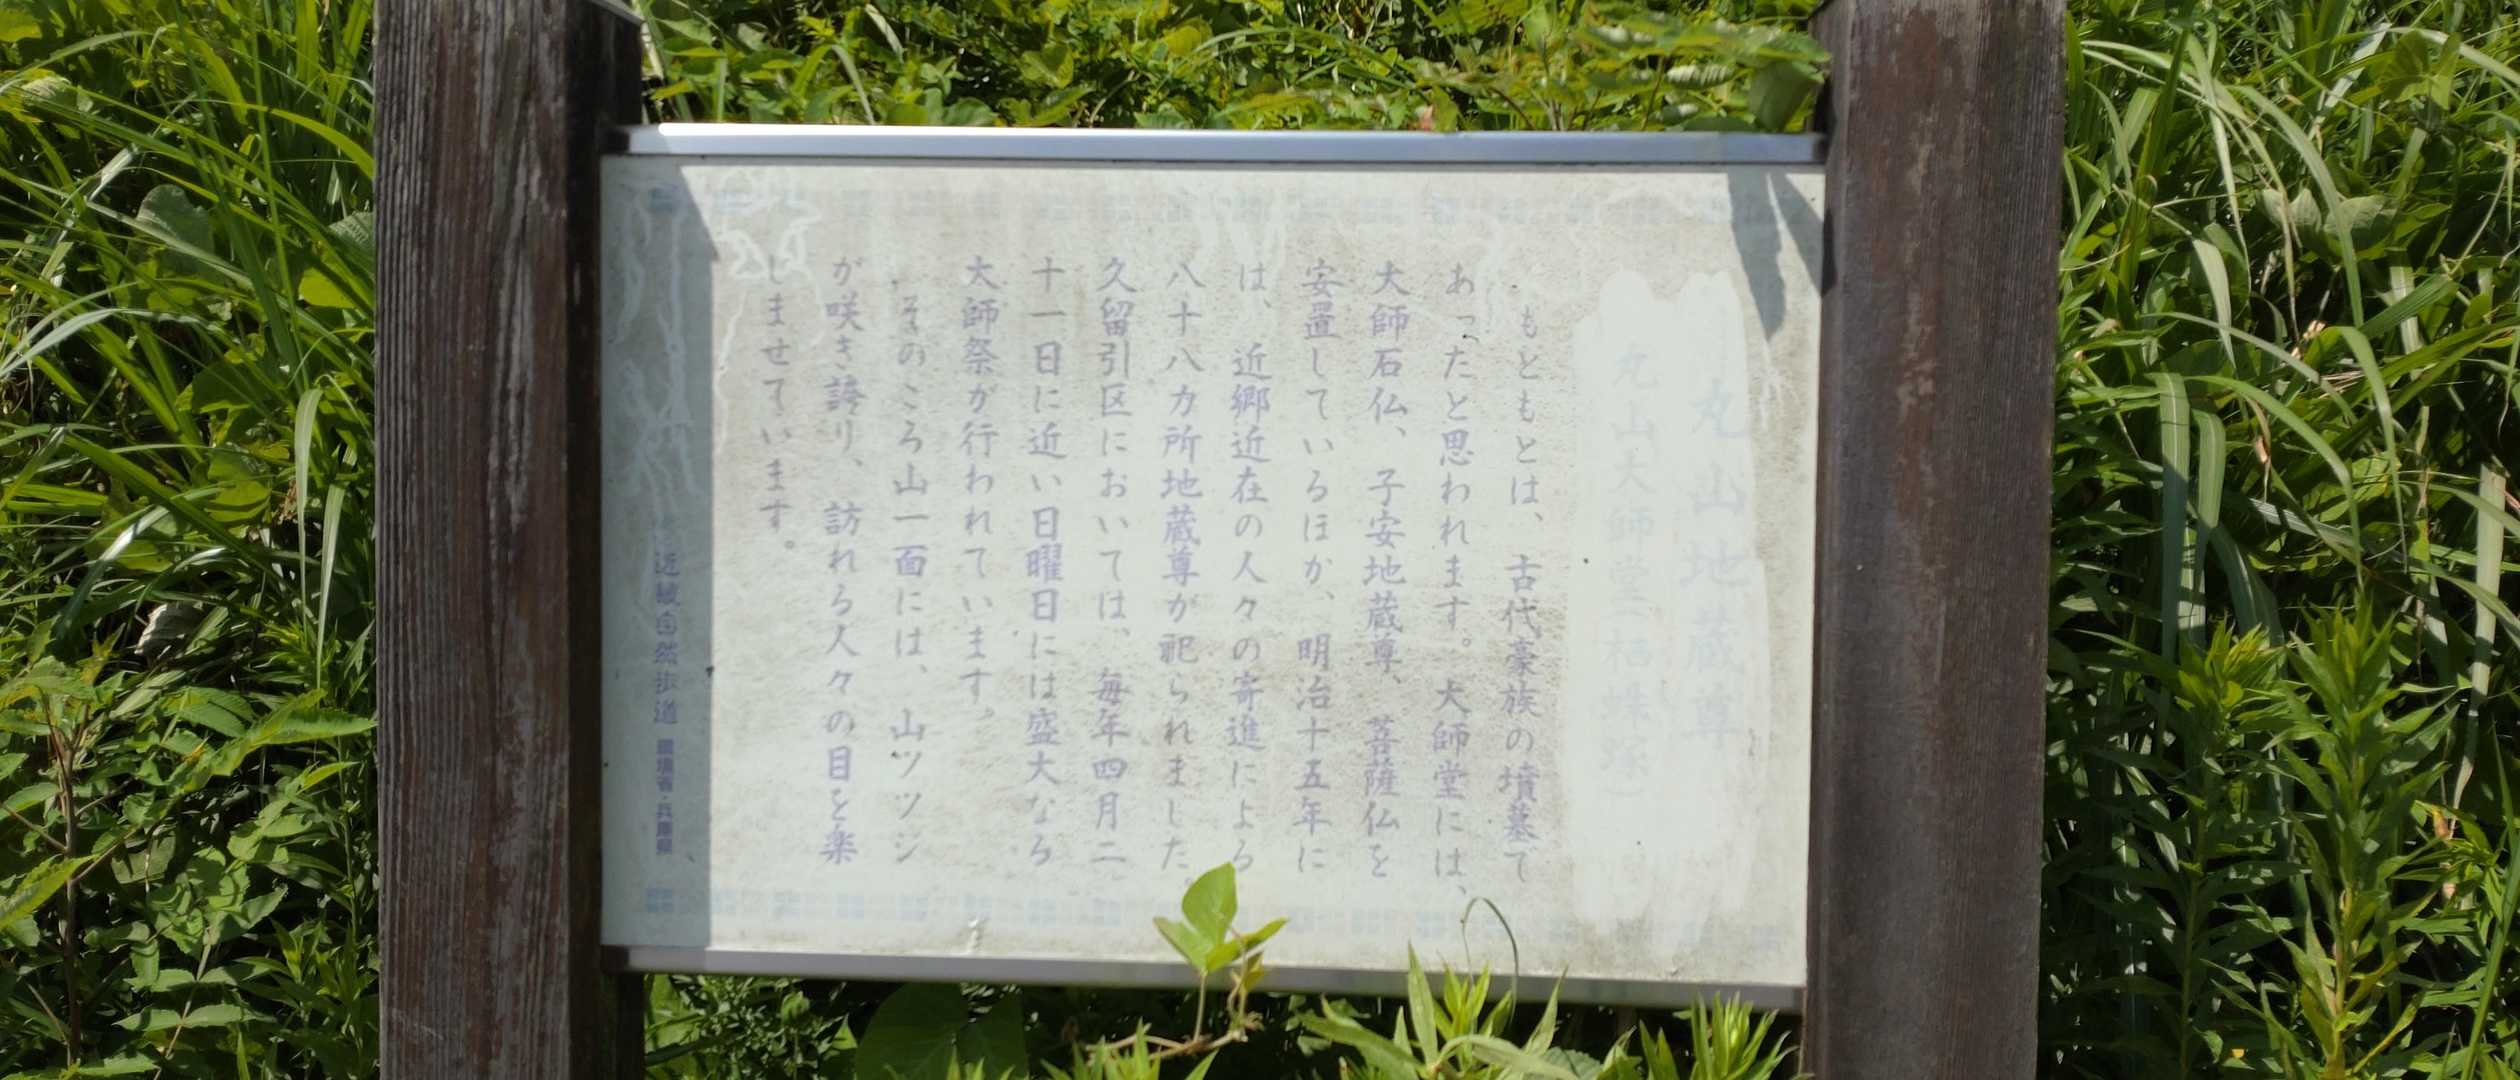 丸山地蔵尊
丸山大師堂(栖蛛塚)
もともとは、古代豪族の墳墓で
あったと思われます。大師堂には、
大師石仏、子安地蔵尊、菩薩仏を
安置しているほか、明治十五年に
は、近郷近在の人々の寄進による
八十八カ所地蔵尊が祀られました。
久留引区においては、毎年四月二
十一日に近い日曜日には盛大なる
大師祭が行われています。
そのころ山一面には、山ツツジ
が咲き誇り、訪れる人々の目を楽
しませています。
近畿自然歩道 環境省・兵庫県